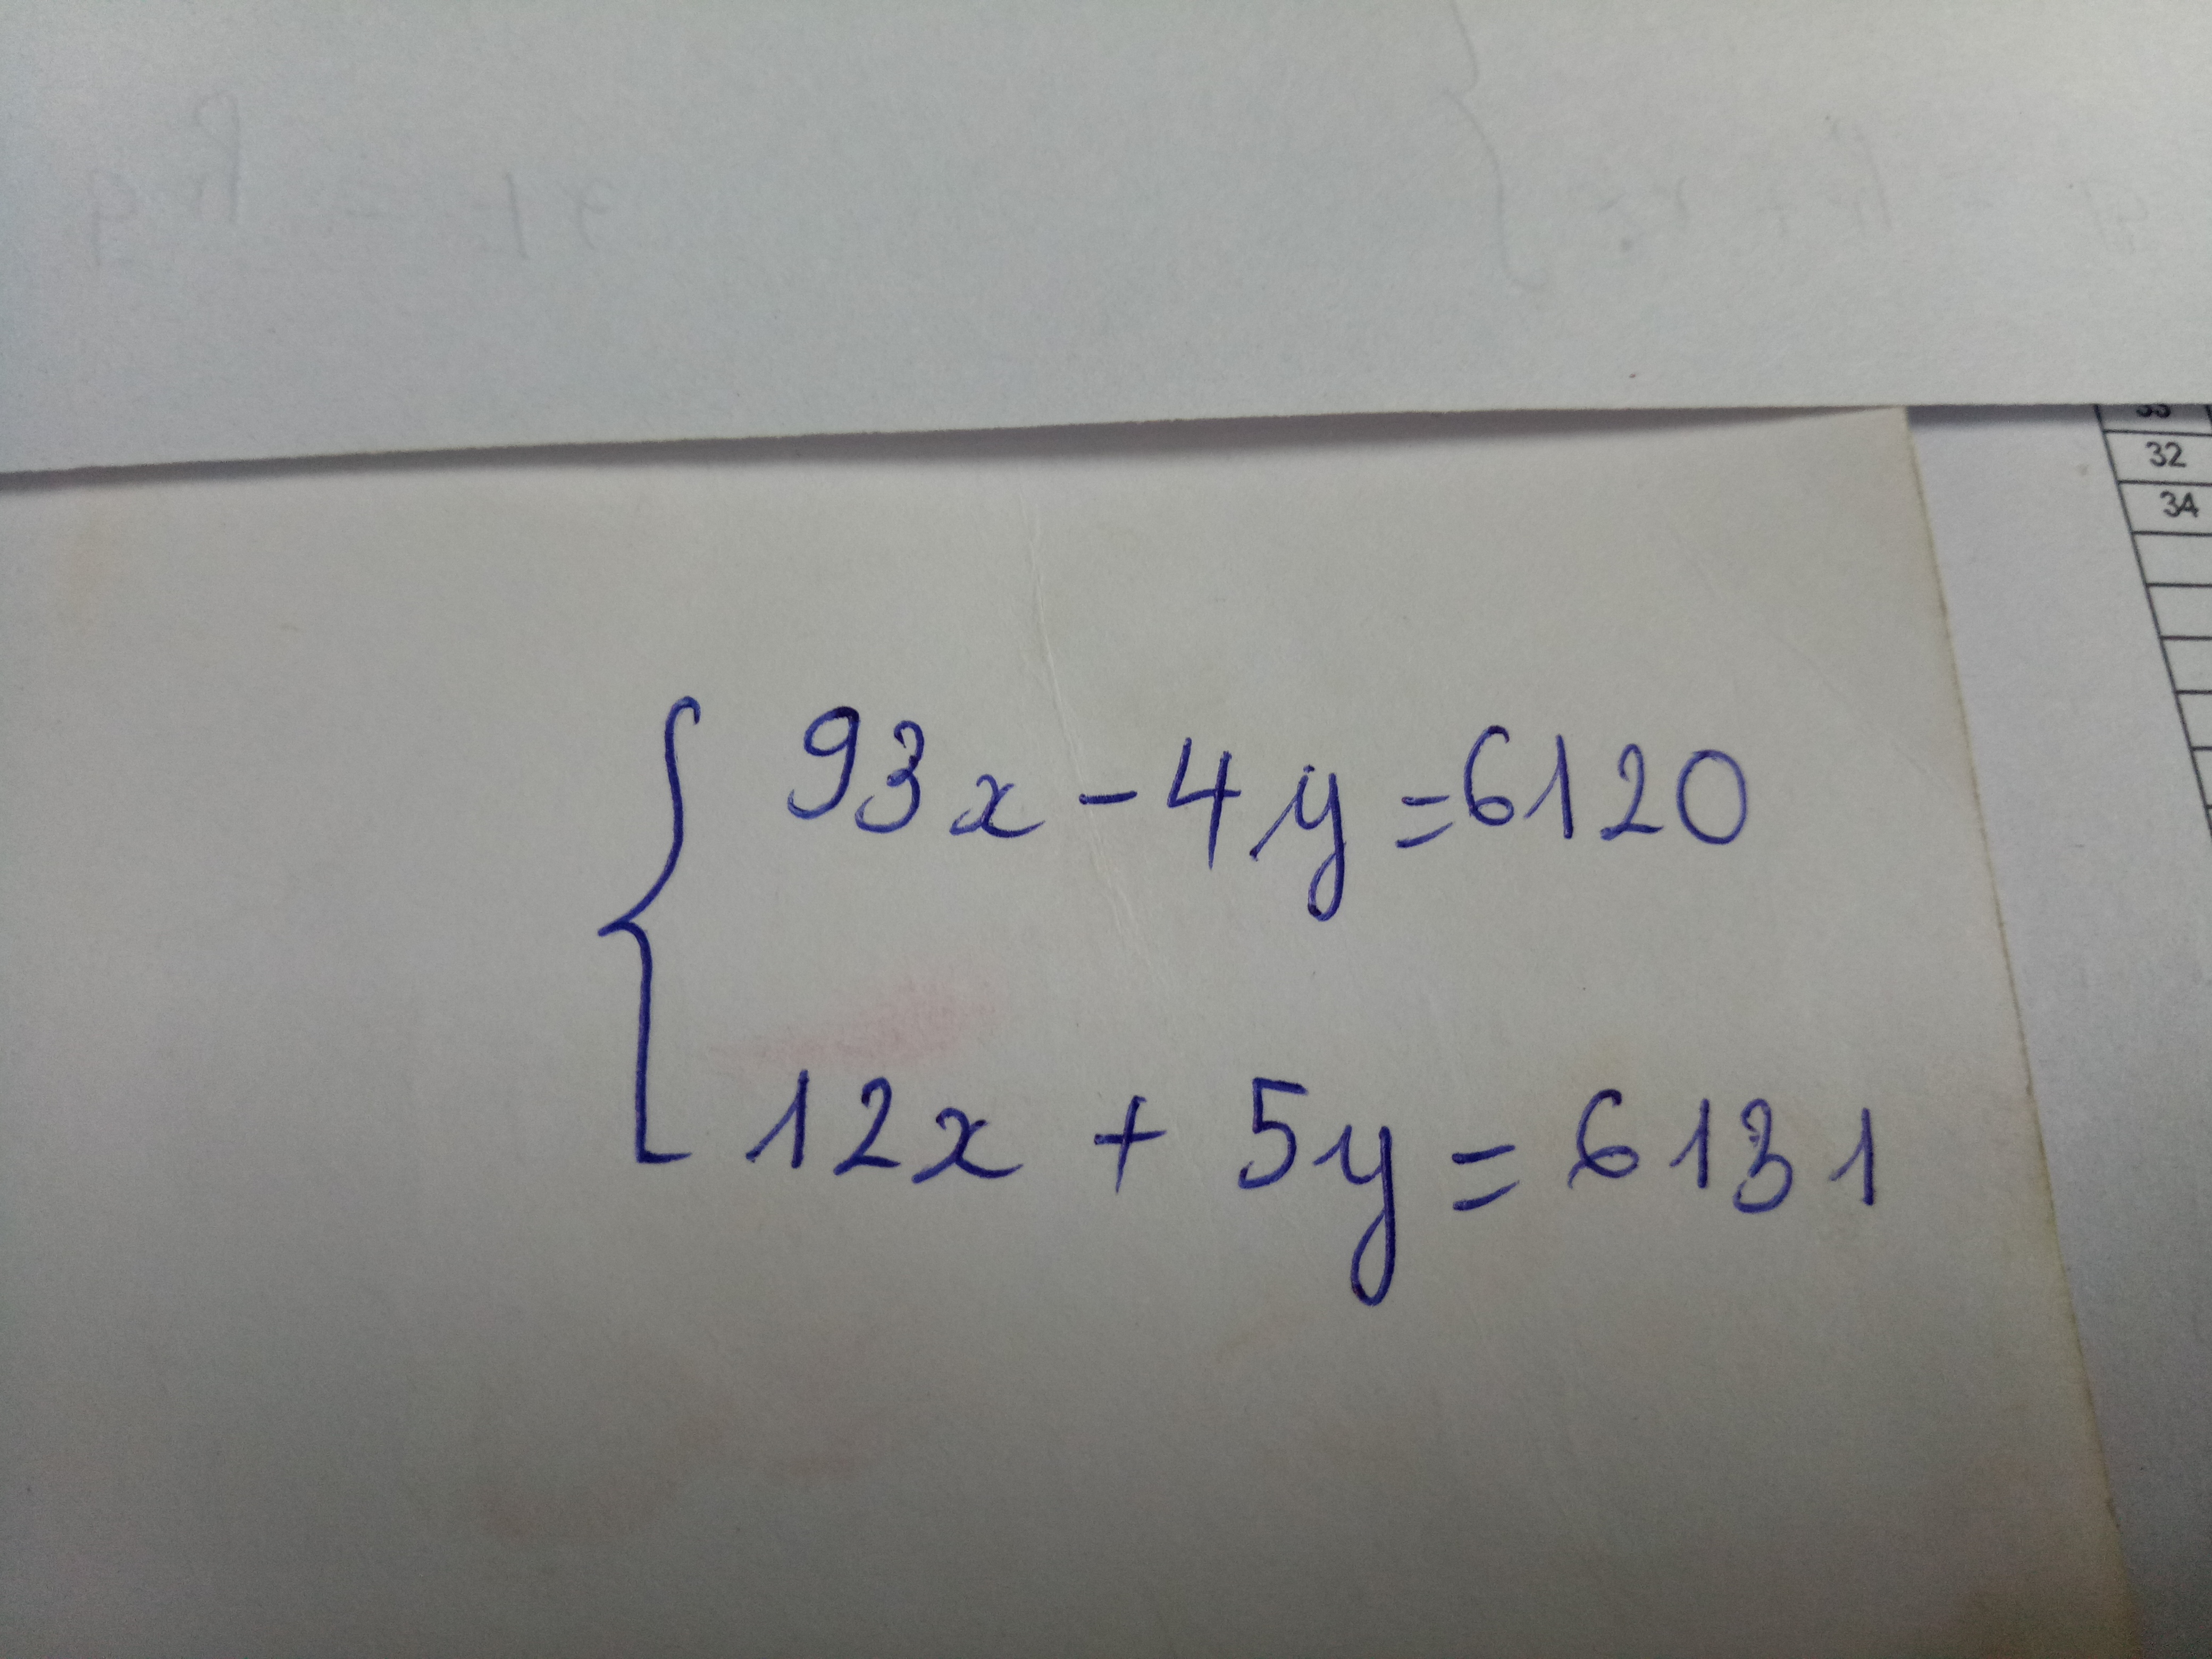 32
34
93x - 4y = 6120
12x + 5y = 6131